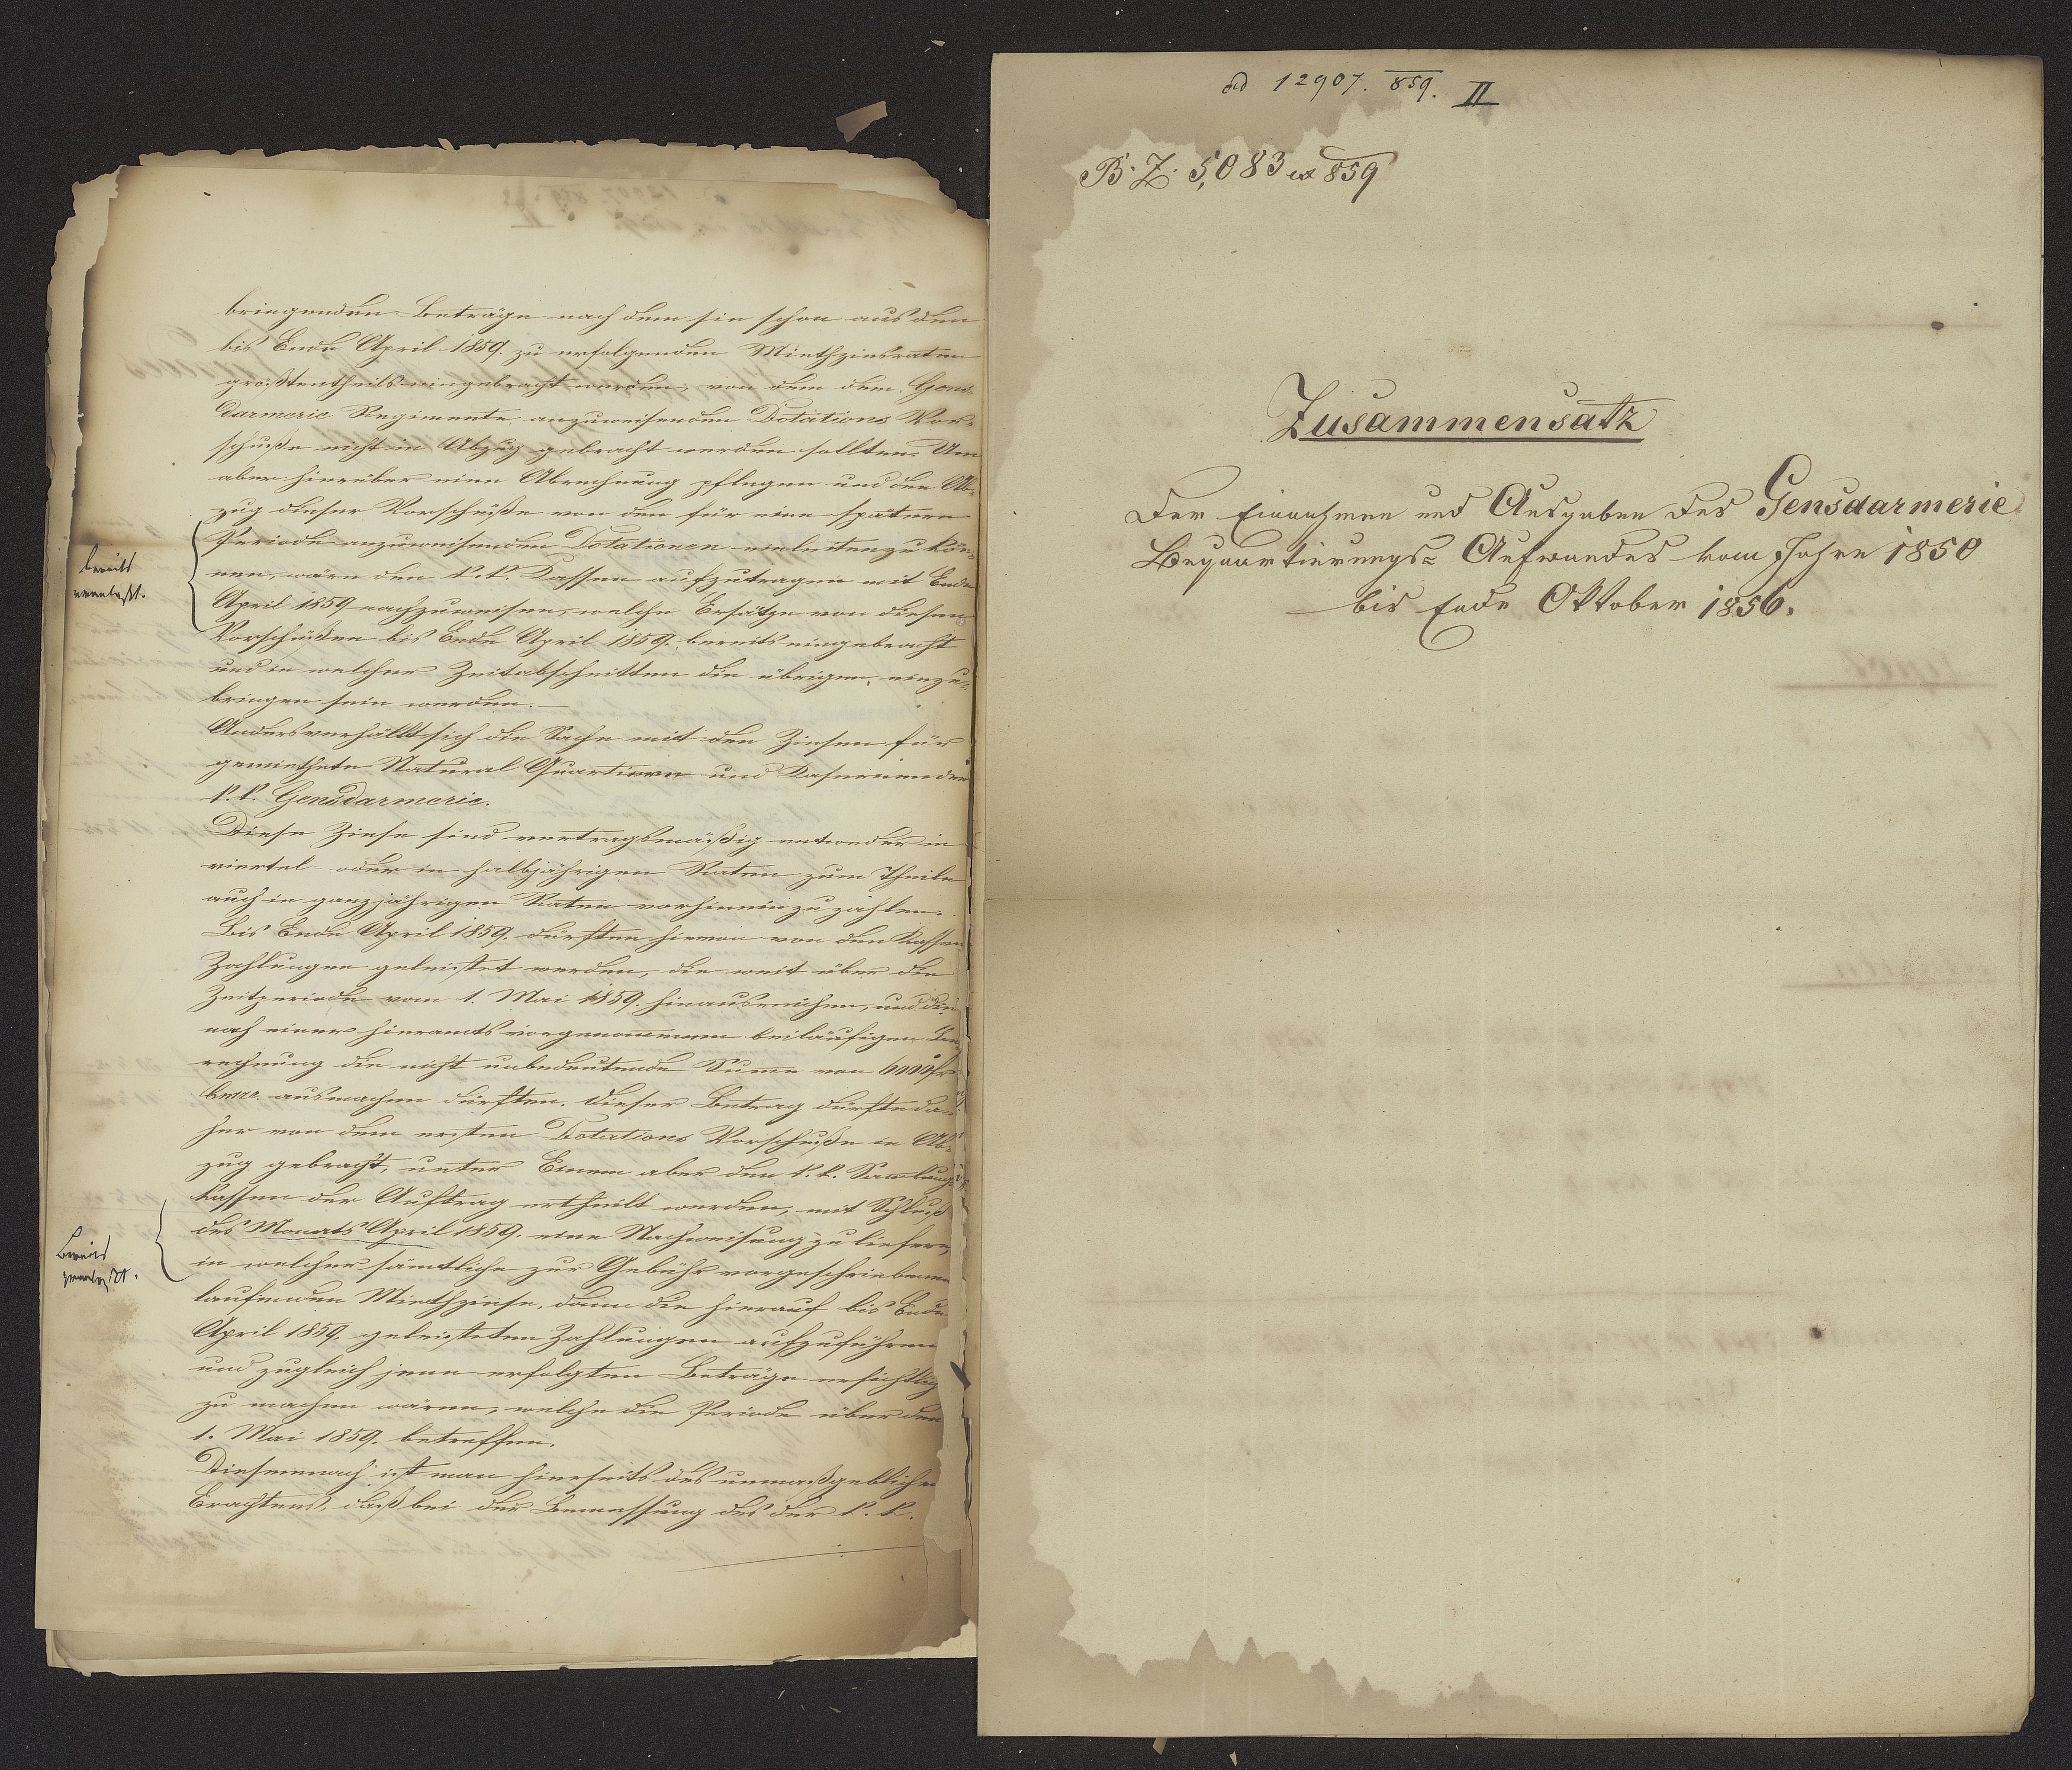 bringenden Beträge nach dem sie schon aus den
bis Ende April 1859. zu erfolgenden Miethzinsraten
größtentheils eingebracht werden, von dem dem Gens-
darmerie Regimente anzuweisenden Dotations Vor-
schuße nicht in Abzug gebracht werden sollten. Um
aber hierüber eine Abrechnung pflegen und den Ab-
zug dieser Vorschüße von den für eine spätere
Periode anzuweisenden Dotationen einleiten zu kön-
nen, wäre den k. k. Kassen aufzutragen mit Ende
April 1859 nachzuweisen, welche Ersätze von diesen
Vorschüßen bis Ende April 1859. bereits eingebracht
und in welcher Zeitabschnitten die übrigen, einzu-
bringen sein werden.
Anders verhällt sich die Sache mit den Zinsen für
gemiethete Natural Quartiere und Kasernen der
k. k. Gensdarmerie.
Diese Zinse sind vertragsmäßig entweder in
viertel- oder in halbjährigen Raten zum Theile
auch in ganzjährigen Raten vorhinein zu zahlen.
Bis Ende April 1859. dürften hievon von den Kassen
Zahlungen geleistet werden, die weit über die
Zeitperiode vom 1. Mai 1859. hinausreichen, und die
nach einer hieramts vorgenommenen beiläufigen Be-
rechnung die nicht unbedeutende Summe von 6000 fr
Cmze. ausmachen dürften. Dieser Betrag dürfte da-
her von dem ersten Dotations Vorschuße in Ab-
zug gebracht, unter Einem aber den k. k. Sammlungs-
kassen der Auftrag ertheilt werden, mit Schluß
des Monats April 1859. eine Nachweisung zu liefern,
in welcher sämtliche zur Gebühr vorgeschriebenen
laufenden Miethzinse, dann die hierauf bis Ende
April 1859. geleisteten Zahlungen aufzuführen
und zugleich jene erfolgten Beträge ersichtlich
zu machen wären, welche die Periode über den
1. Mai 1859. betreffen.
Diesemnach ist man hierseits des unmaßgeblichen
Erachtens, daß bei der Bemessung des der k. k.
bereits
veranlaßt.
Bereits
veranlaßt.
ad 12907. 859. II
B. Z. 5,083 ex 859
Zusammensatz
Der Einnahmen und Ausgaben des Gensdarmerie
Bequartierungs= Aufwandes vom Jahre 1850
bis Ende Oktober 1856.